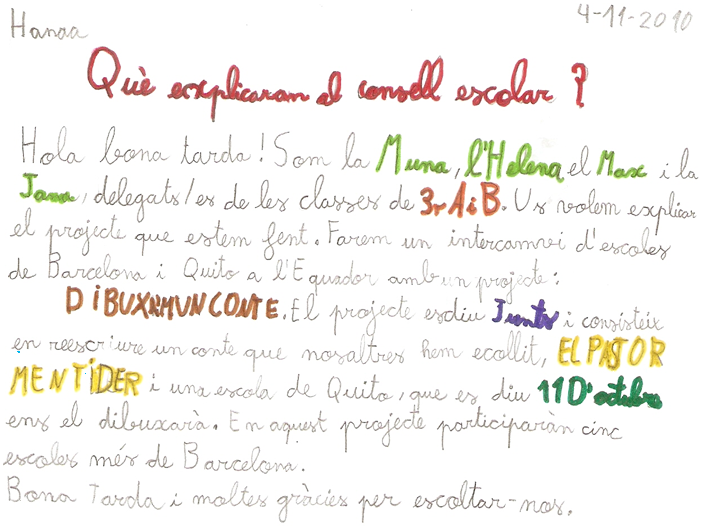 Hanaa
4-11-2010
Què explicaram al consell escolar ?
Hola bona tarda! Som la Muna, l'Helena, el Max i la
Jana, delegats/es de les classes de 3r A i B. Us volem explicar
el projecte que estem fent. Farem un intercanvi d'escoles
de Barcelona i Quito a l'Equador amb un projecte:
DiBUXEM UN CONTE. El projecte esdiu Junts i consisteix
en reescriure un conte que nosaltres hem ecollit, EL PASTOR
MENTiDER i una escola de Quito, que es diu 11 D'octubre
ens el dibuxarà. En aquest projecte participaràn cinc
escoles més de Barcelona.
Bona Tarda i moltes gràcies per escoltar-nos.